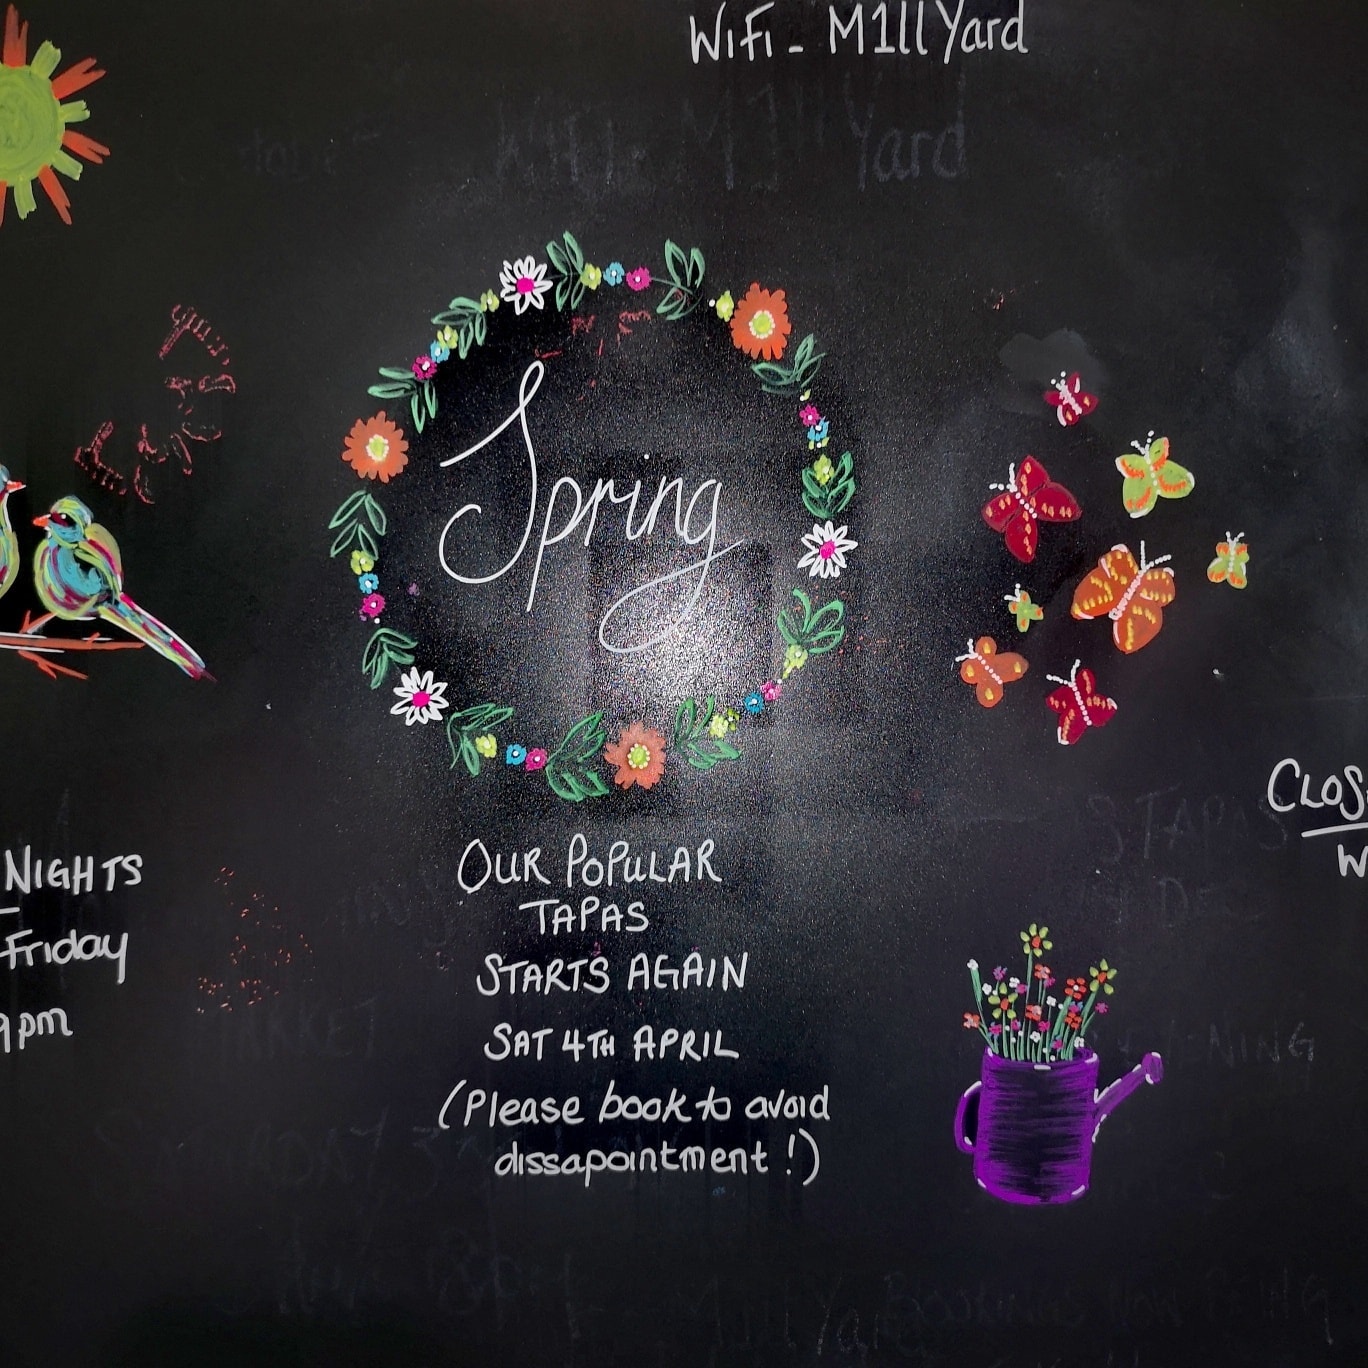 WiFi - M1llYard
Spring
NIGHTS
Friday
9pm
OUR POPULAR
TAPAS
STARTS AGAIN
SAT 4TH APRIL
(Please book to avoid
dissapointment!)